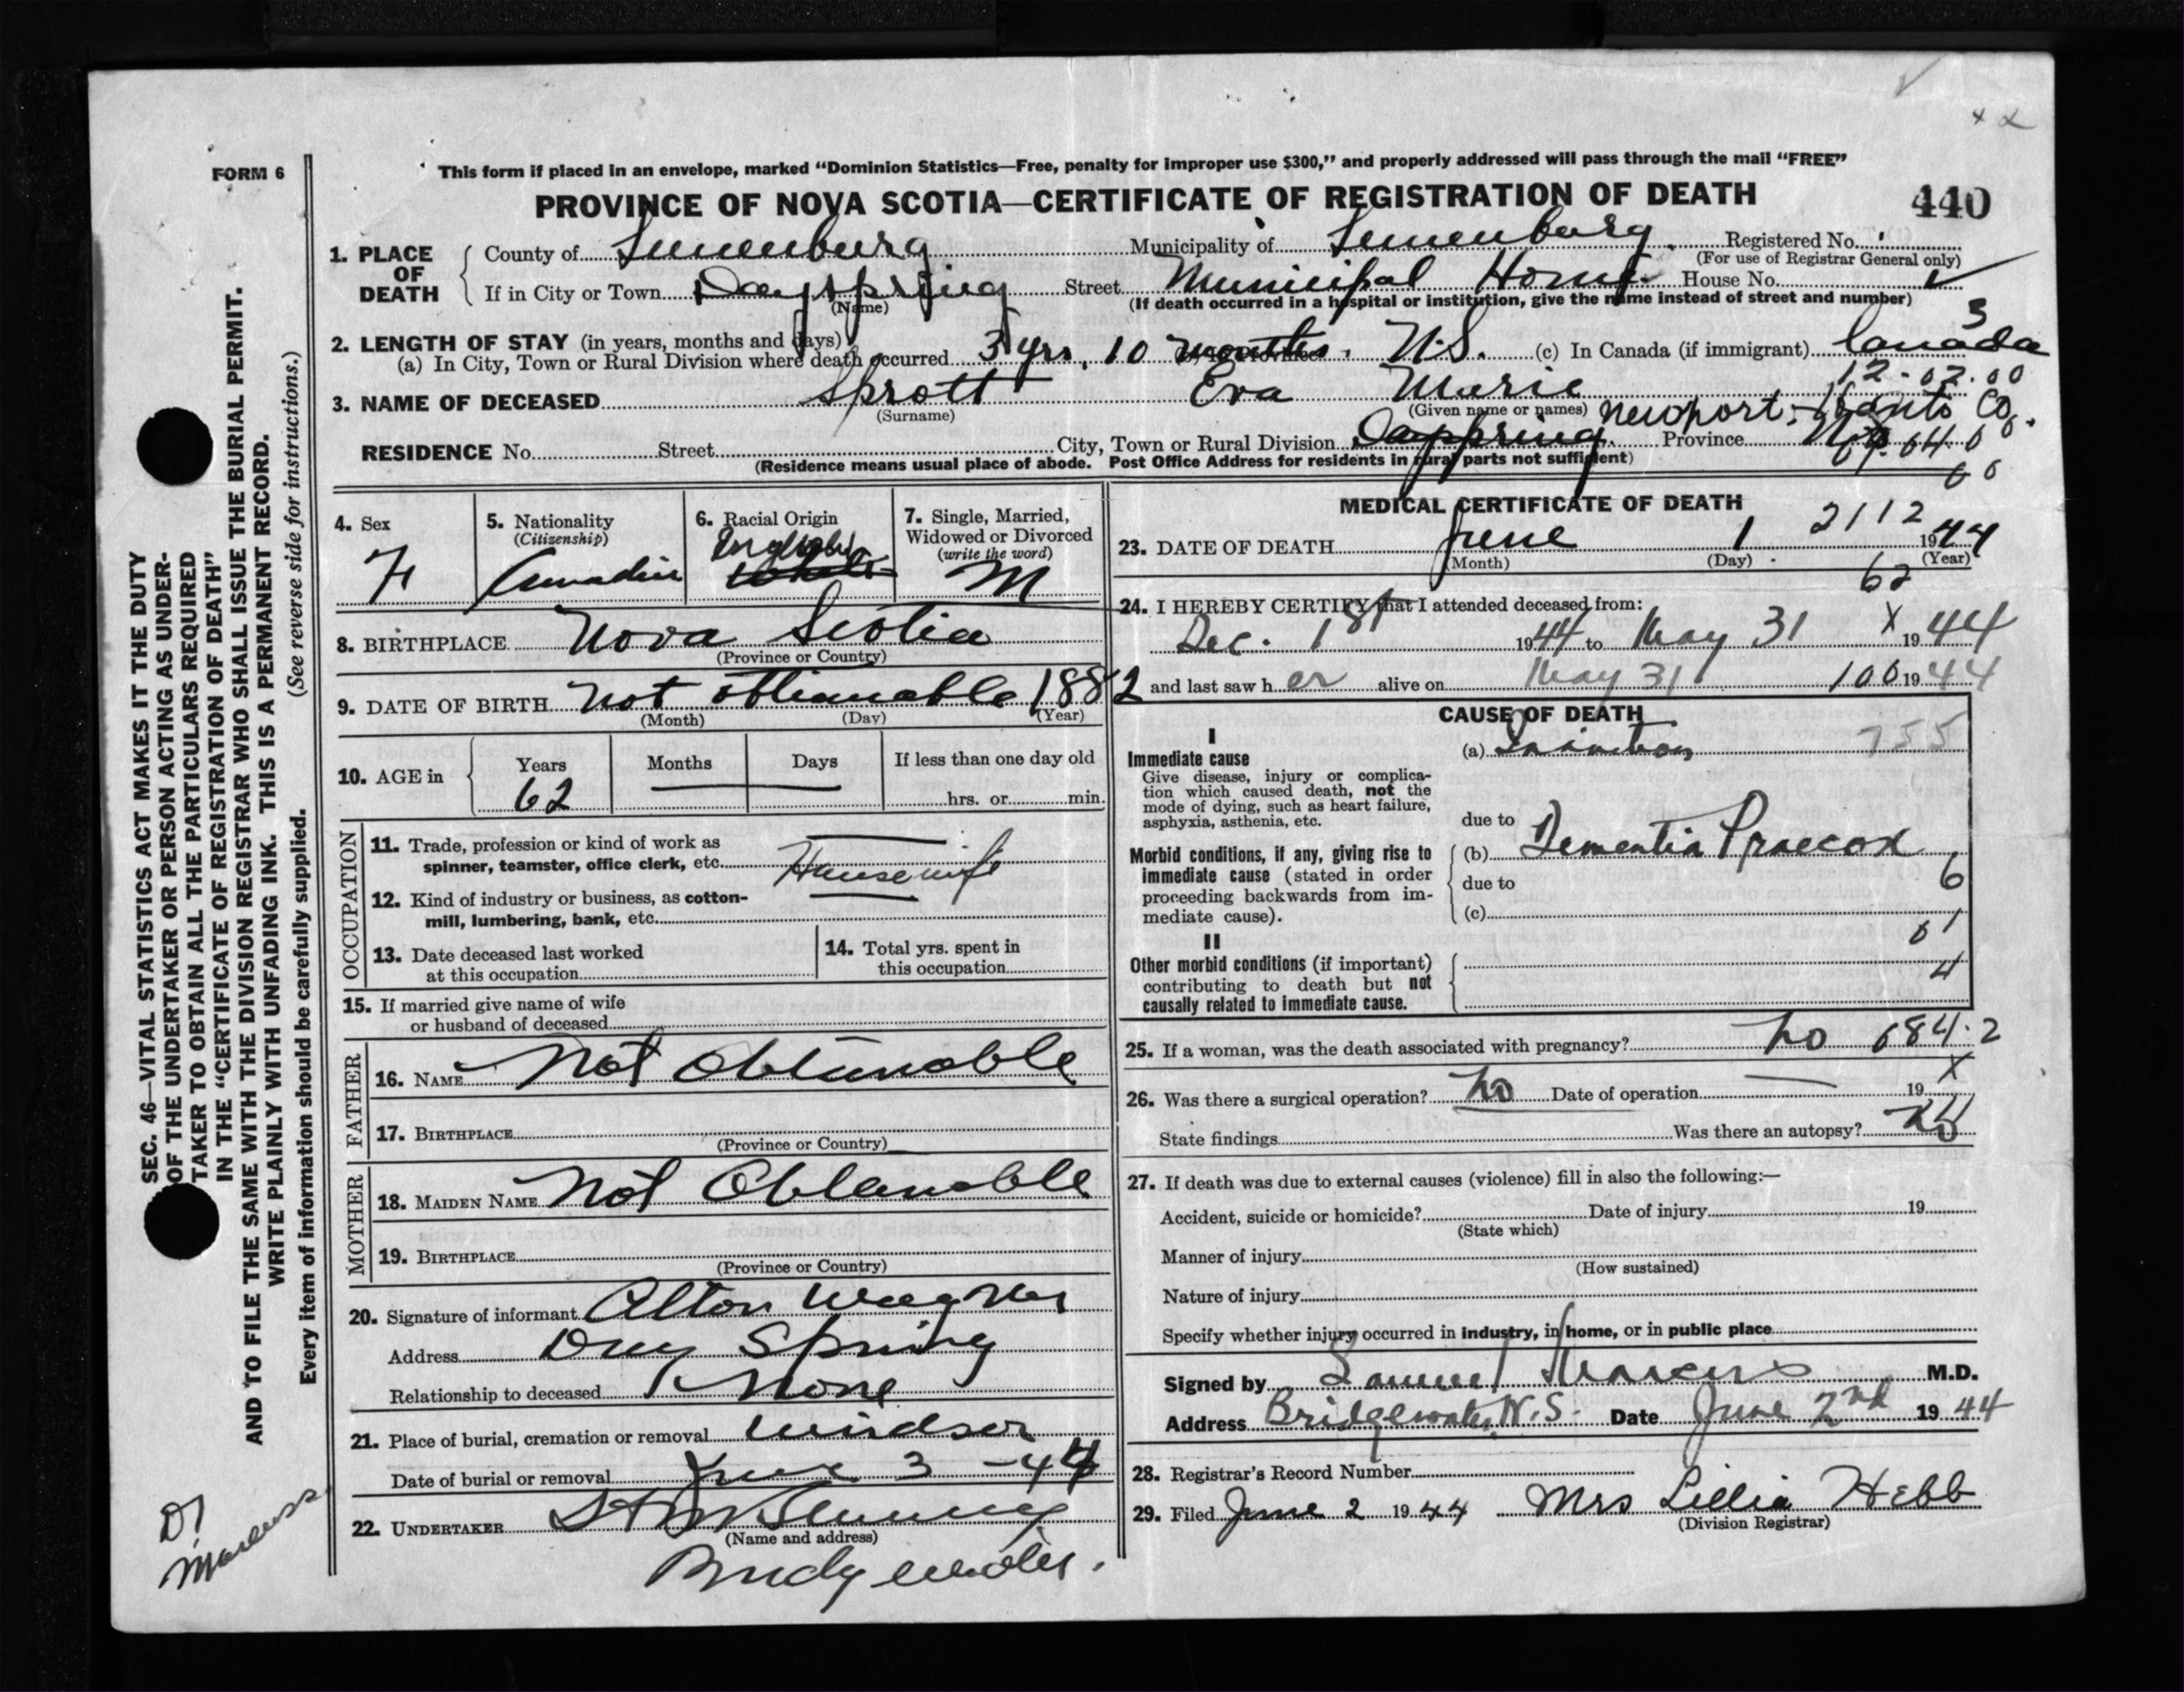 FORM 6
This form if placed in an envelope, marked “Dominion Statistics—Free, penalty for improper use $300,” and properly addressed will pass through the mail “FREE”
PROVINCE OF NOVA SCOTIA—CERTIFICATE OF REGISTRATION OF DEATH
440
1. PLACE OF DEATH
County of Lunenburg Municipality of Lunenburg Registered No.
(For use of Registrar General only)
If in City or Town Dayspring Street Municipal Home House No.
(Name) (If death occurred in a hospital or institution, give the name instead of street and number)
2. LENGTH OF STAY (in years, months and days)
(a) In City, Town or Rural Division where death occurred 3 yrs, 10 months. N.S. (c) In Canada (if immigrant) Canada
3
12-02.00
3. NAME OF DECEASED Sprott Eva Marie
(Surname) (Given name or names)
Newport, Hants Co.
RESIDENCE No. Street City, Town or Rural Division Dayspring Province
(Residence means usual place of abode. Post Office Address for residents in rural parts not sufficient)
4. Sex F
5. Nationality (Citizenship) Canadian
6. Racial Origin English White
7. Single, Married, Widowed or Divorced (write the word) M
8. BIRTHPLACE Nova Scotia
(Province or Country)
9. DATE OF BIRTH not obtianable 1882
(Month) (Day) (Year)
10. AGE in Years 62 Months Days If less than one day old
hrs. or min.
OCCUPATION
11. Trade, profession or kind of work as spinner, teamster, office clerk, etc. Housewife
12. Kind of industry or business, as cotton-mill, lumbering, bank, etc.
13. Date deceased last worked at this occupation
14. Total yrs. spent in this occupation
15. If married give name of wife or husband of deceased
FATHER
16. NAME Not Obtainable
17. BIRTHPLACE
(Province or Country)
MOTHER
18. MAIDEN NAME Not Obtainable
19. BIRTHPLACE
(Province or Country)
20. Signature of informant Alton Wagner
Address Day Spring
Relationship to deceased None
21. Place of burial, cremation or removal Windsor
Date of burial or removal June 3 - 44
22. UNDERTAKER
(Name and address)
Bridgewater.
MEDICAL CERTIFICATE OF DEATH
2112
23. DATE OF DEATH June 1 1944
(Month) (Day) (Year)
62
24. I HEREBY CERTIFY that I attended deceased from:
Dec. 1st 1944 to May 31 X 1944
and last saw her alive on May 31 100 1944
CAUSE OF DEATH
I
Immediate cause
Give disease, injury or complication which caused death, not the mode of dying, such as heart failure, asphyxia, asthenia, etc.
(a) Inanition 755
due to
Morbid conditions, if any, giving rise to immediate cause (stated in order proceeding backwards from immediate cause).
(b) Dementia Praecox
due to 6
(c)
01
II
Other morbid conditions (if important) contributing to death but not causally related to immediate cause.
4
25. If a woman, was the death associated with pregnancy? no 684.2
26. Was there a surgical operation? no Date of operation 19 X
State findings Was there an autopsy? no
27. If death was due to external causes (violence) fill in also the following:—
Accident, suicide or homicide? Date of injury 19
(State which)
Manner of injury
(How sustained)
Nature of injury
Specify whether injury occurred in industry, in home, or in public place
Signed by Samuel Marcus M.D.
Address Bridgewater N.S. Date June 2nd 1944
28. Registrar's Record Number
29. Filed June 2 1944 Mrs Lillia Hebb
(Division Registrar)
SEC. 46—VITAL STATISTICS ACT MAKES IT THE DUTY
OF THE UNDERTAKER OR PERSON ACTING AS UNDER-
TAKER TO OBTAIN ALL THE PARTICULARS REQUIRED
IN THE “CERTIFICATE OF REGISTRATION OF DEATH”
AND TO FILE THE SAME WITH THE DIVISION REGISTRAR WHO SHALL ISSUE THE BURIAL PERMIT.
WRITE PLAINLY WITH UNFADING INK. THIS IS A PERMANENT RECORD.
(See reverse side for instructions.)
Every item of information should be carefully supplied.
Dr Marcuss